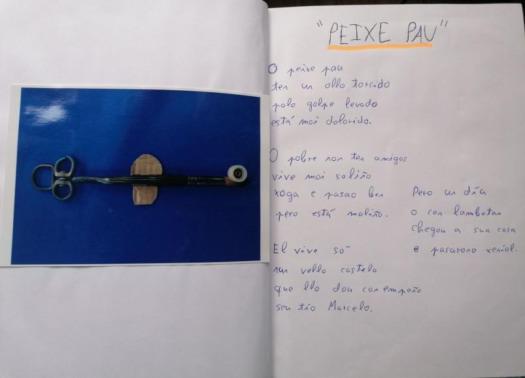 "PEIXE PAU"
O peixe pau
ten un ollo torcido
polo golpe levado
está moi dolorido.
O pobre non ten amigos
vive moi soliño
xoga e pasao ben
pero está maliño.
El vive só
nun vello castelo
que llo dou con empeño
seu tío Marcelo.
Pero un día
o can lambetas
chegou a súa casa
e pasárono xenial.